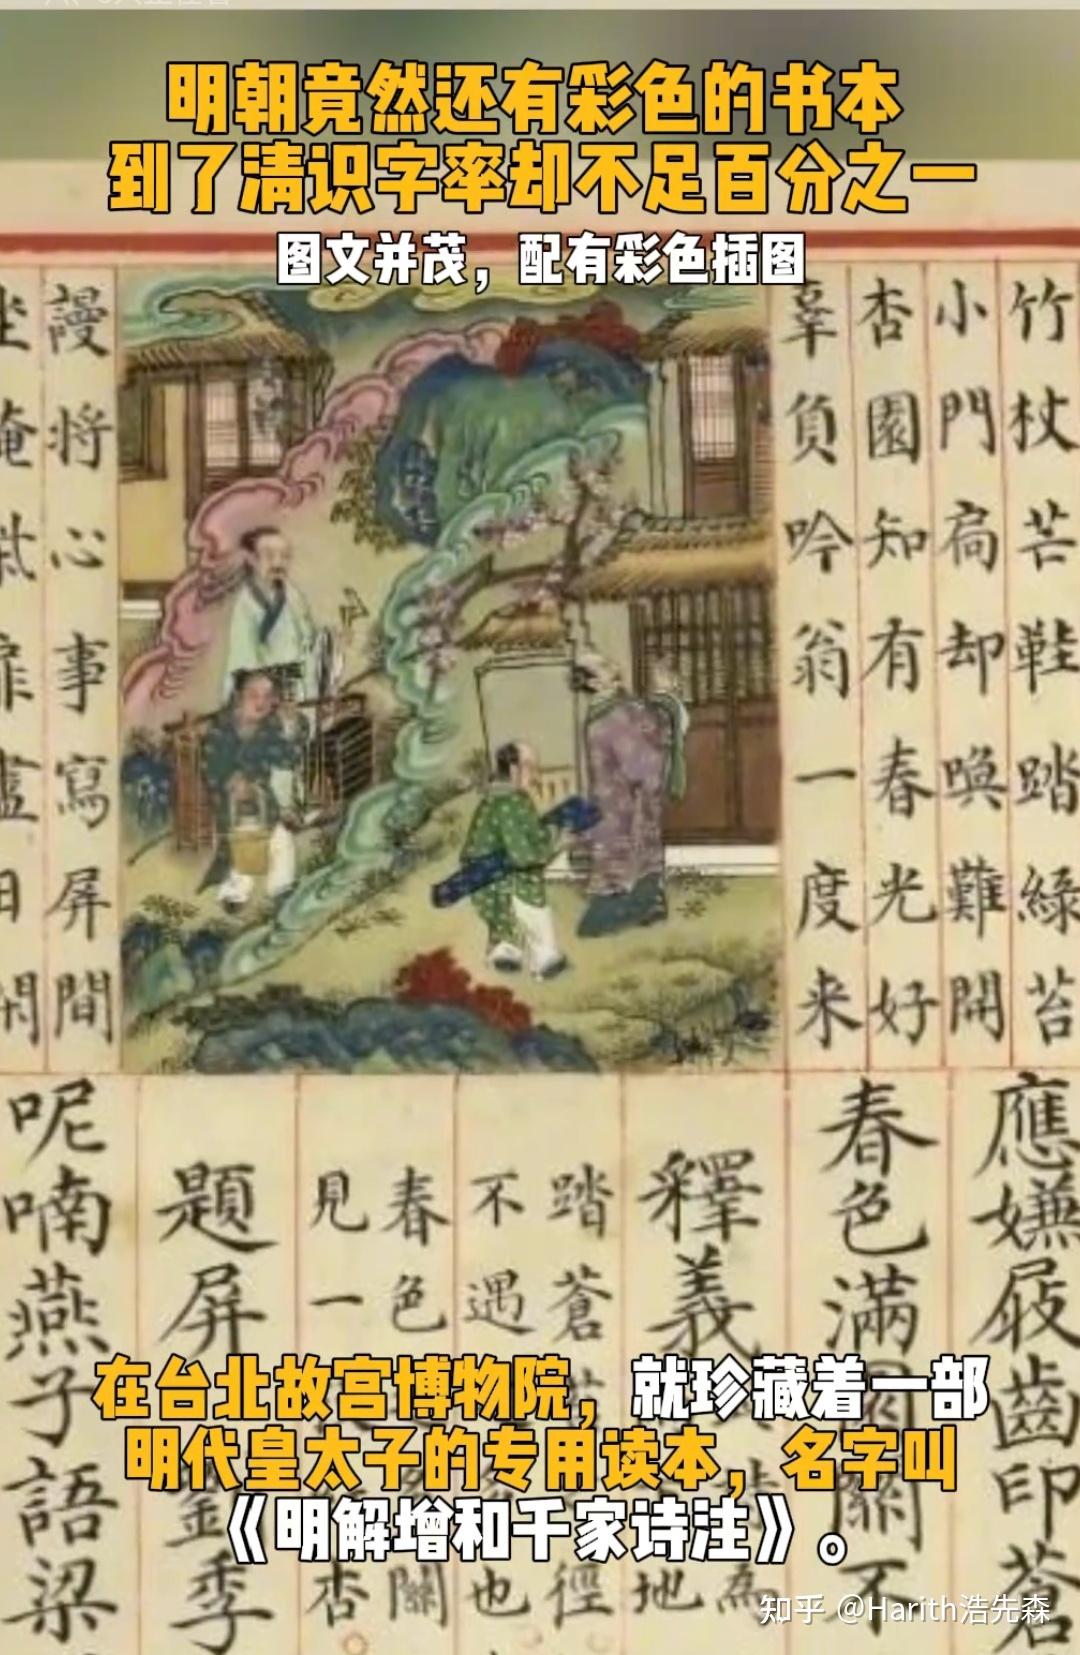 明朝竟然还有彩色的书本
到了清识字率却不足百分之一
图文并茂，配有彩色插图
竹杖芒鞋踏綠苔
小門扃却喚難開
杏園知有春光好
辜負吟翁一度来
謾将心事寫屏間
應嫌屐齒印蒼
春色滿園關不
釋義
踏蒼
不遇
春色
見一
題屏
呢喃燕子語梁
在台北故宫博物院，就珍藏着一部
明代皇太子的专用读本，名字叫
《明解增和千家诗注》。
季
徑
也
關
杏
地
為
知乎 @Harith浩先森